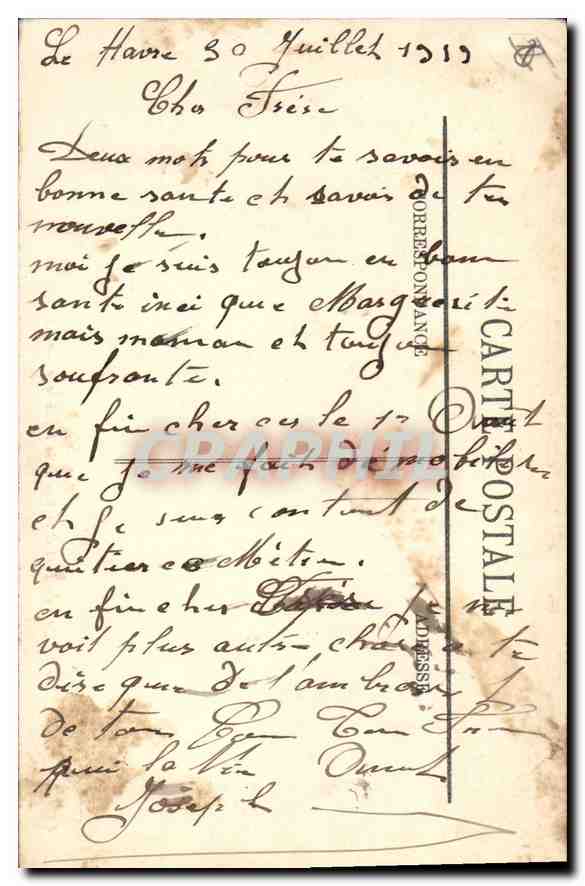 Le Havre 30 Juillet 1919
Cher Frére
Deux mots pour te savoir en
bonne sante et savoir de tes
nouvelle.
moi je suis toujour en bonne
sante insi que Margrerite
mais maman et toujour
soufrante.
en fin cher ces le 17 Out
que je me fait démobiliser
et je sui contant de
quitier ce Métier.
en fin cher je ne
voit plus autre chose a te
dire que de t'ambrasser
de ton Frere
pour la Vie
Joseph
CORRESPONDANCE
CARTE POSTALE
ADRESSE
CPAPHIL